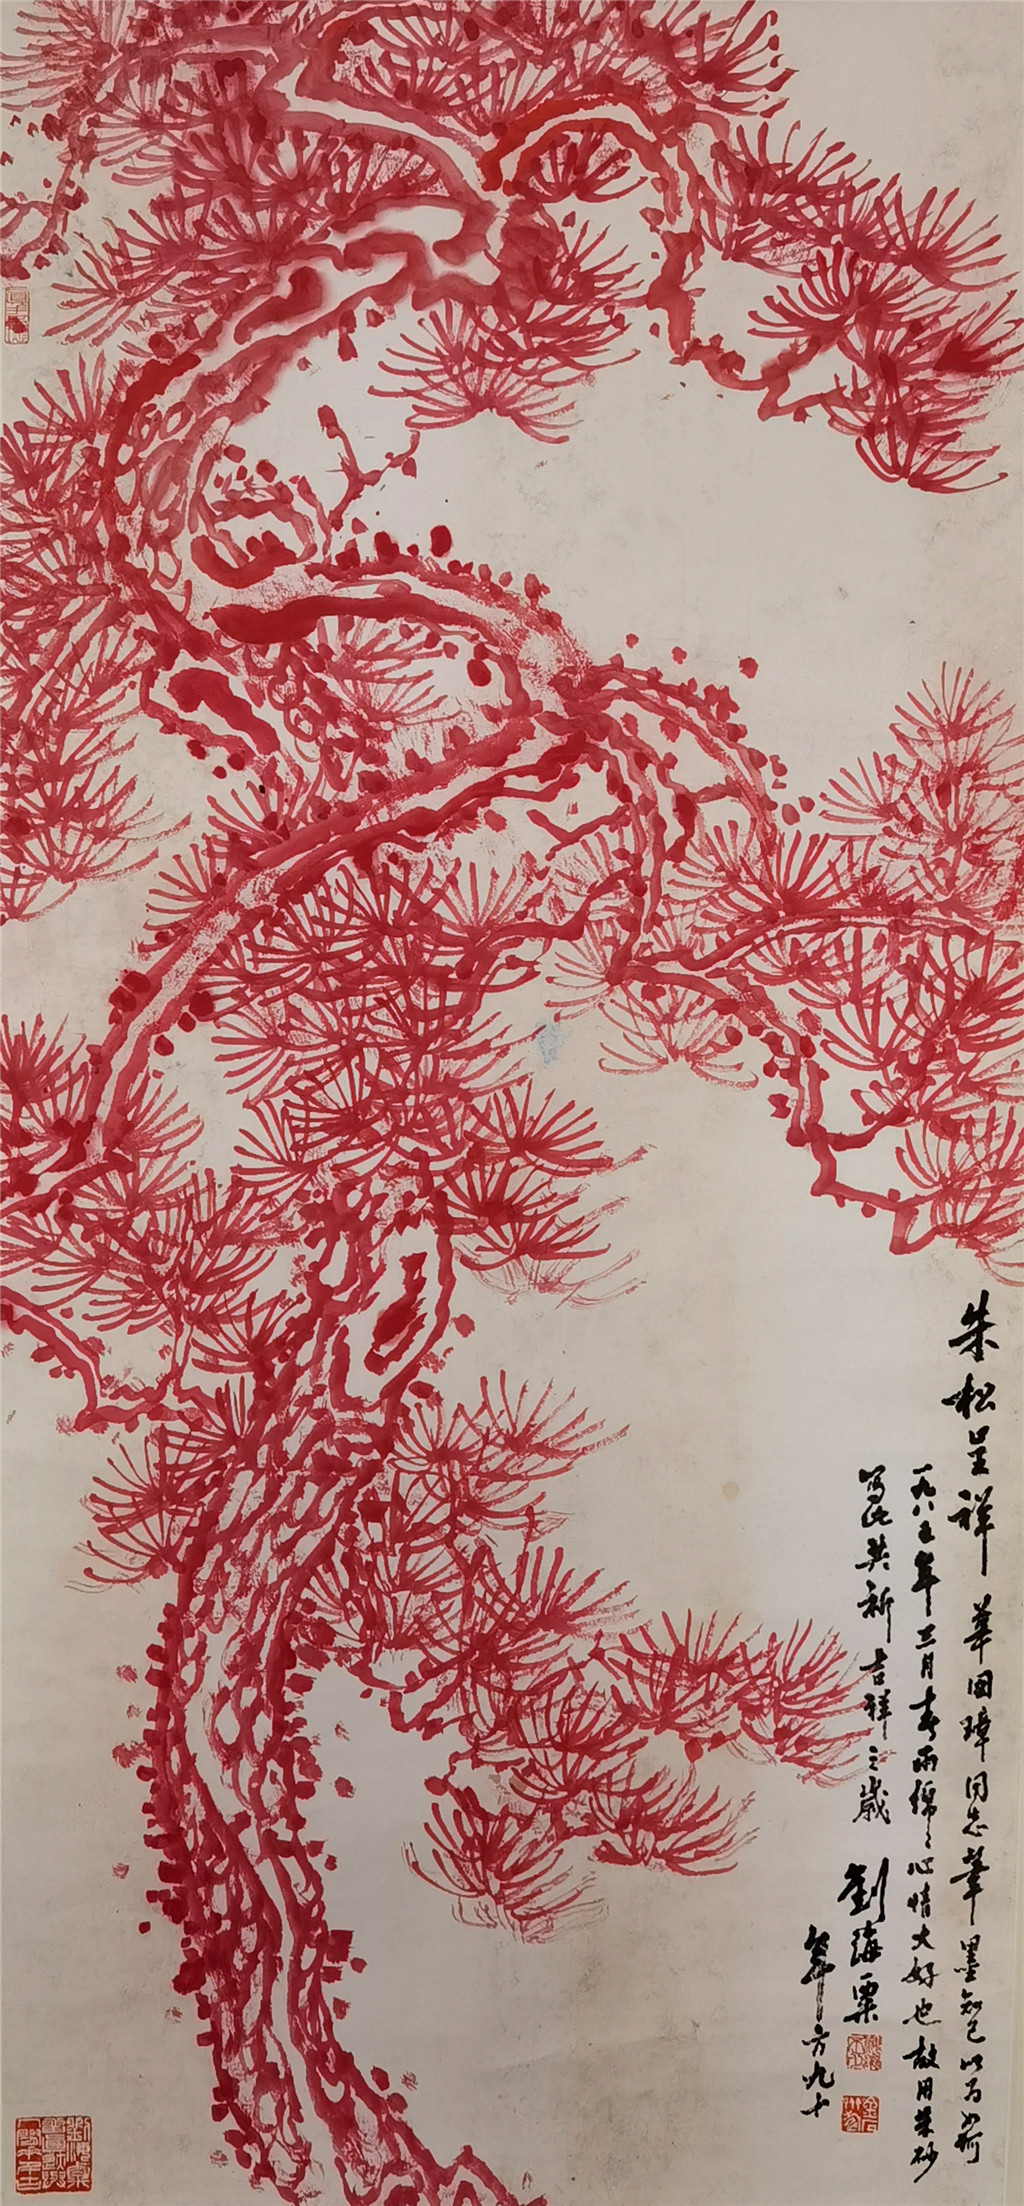 朱松呈祥 華国璋同志筆墨知己以为如何
一九八五年三月春雨绵〻心情大好也故用朱砂
写此共祈吉祥之歲 劉海粟
年方九十